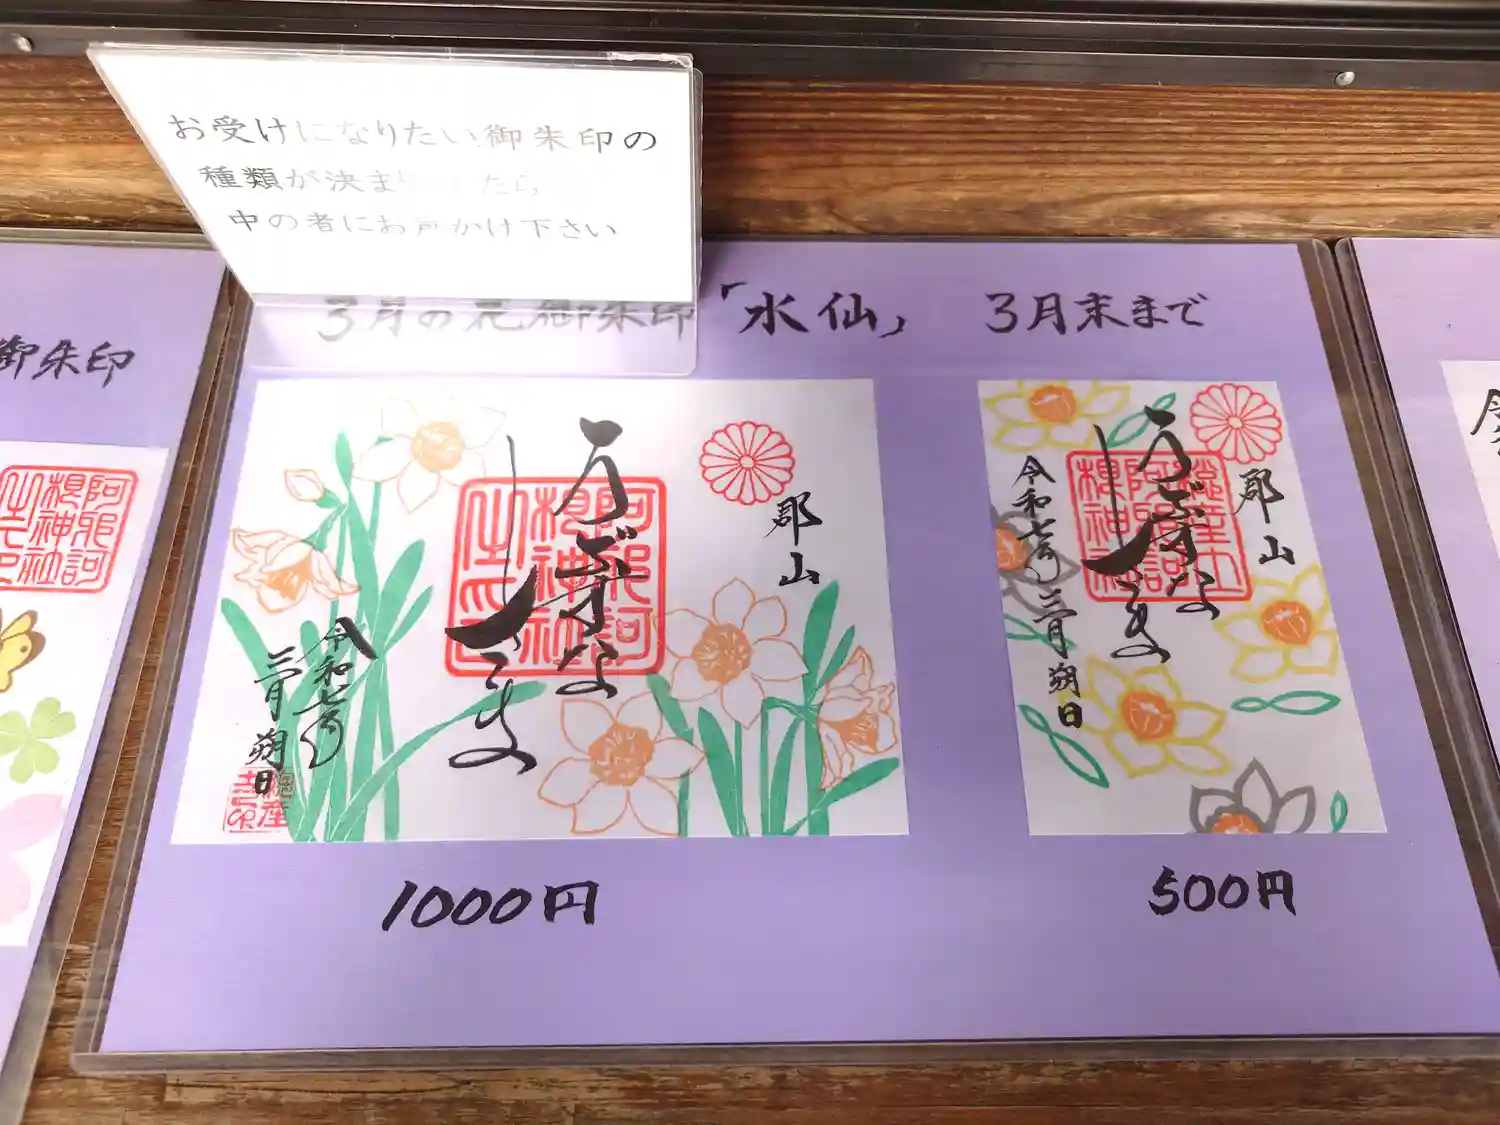 お受けになりたい御朱印の
種類が決まりましたら
中の者にお声かけ下さい
3月の花御朱印「水仙」 3月末まで
御朱印
阿邪訶
根神社
之印
郡山
うぶすな
令和七年
三月朔日
1000円
郡山
うぶすな
令和七年三月朔日
500円